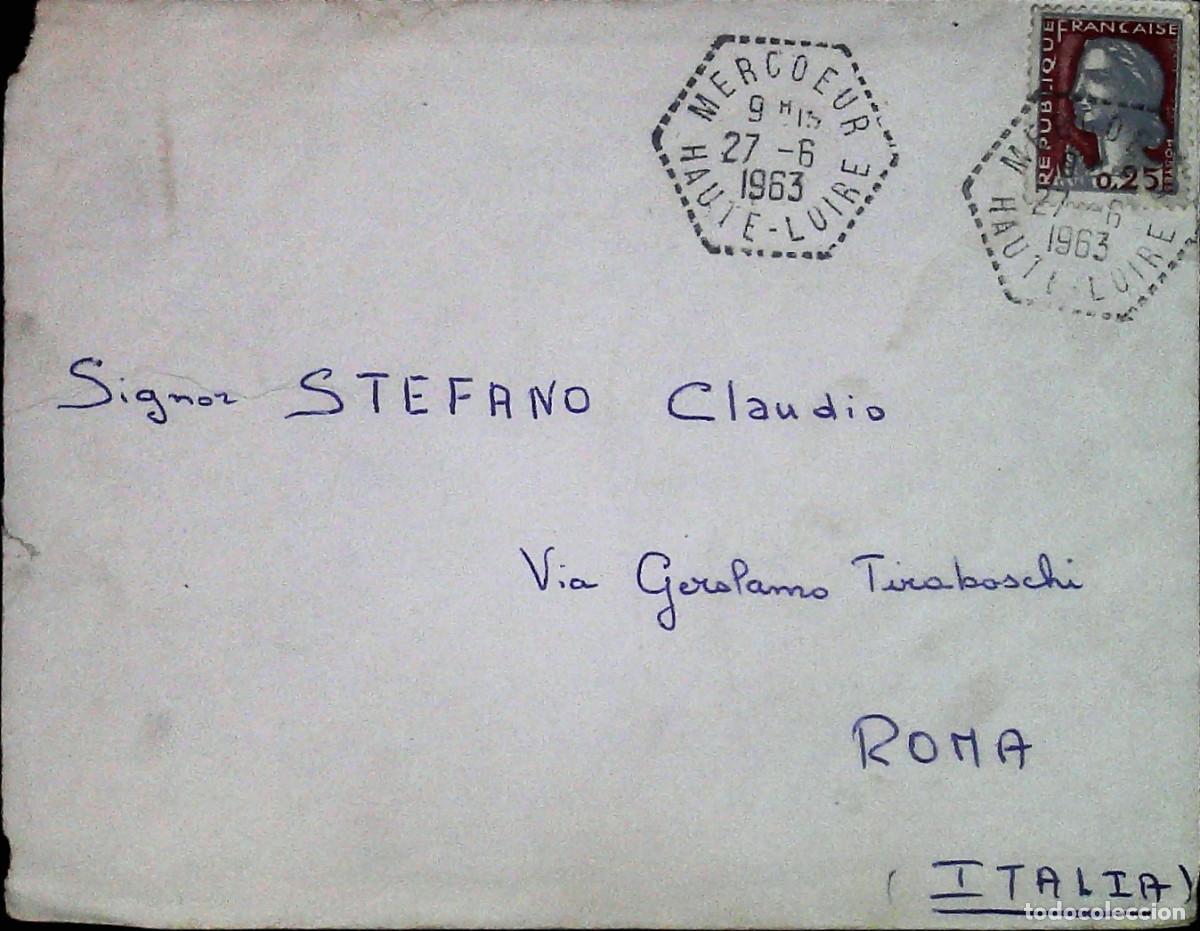 MERCOEUR
9 H 15
27 -6
1963
HAUTE-LOIRE
REPUBLIQUE FRANCAISE
0,25
27 -6
1963
HAUTE-LOIRE
Signor STEFANO Claudio
Via Gerolamo Tiraboschi
ROMA
(ITALIA)
todocoleccion